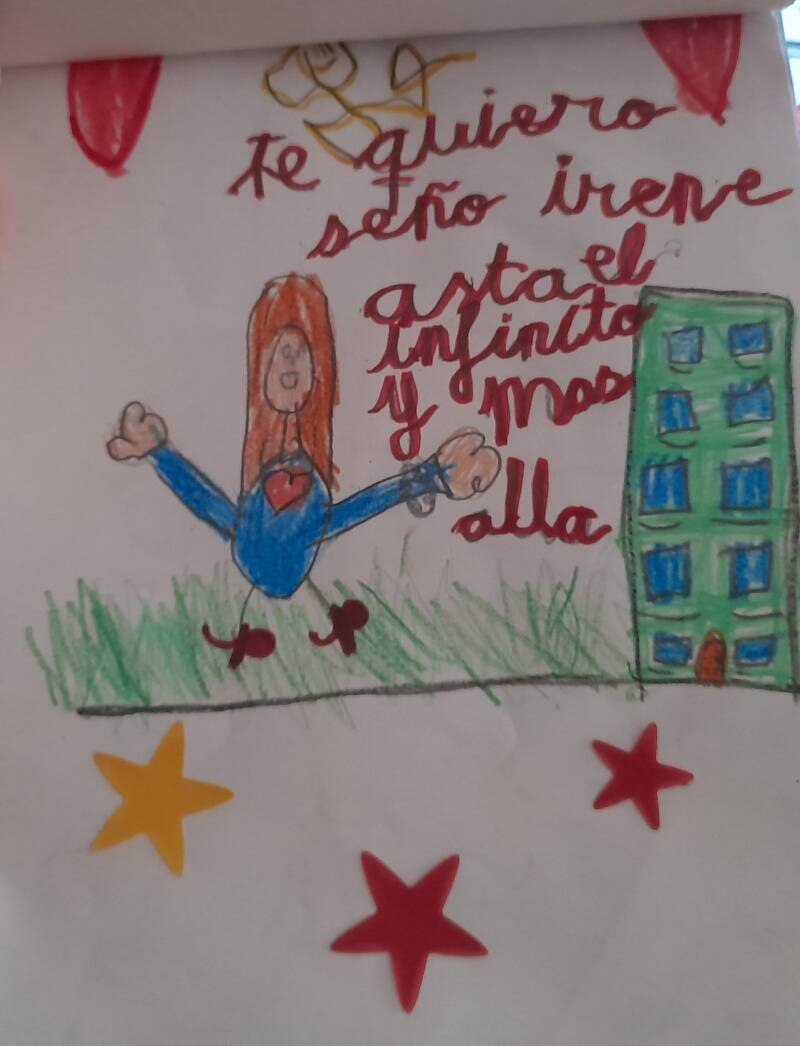 te quiero
seño irene
asta el
infincito
y mas
alla